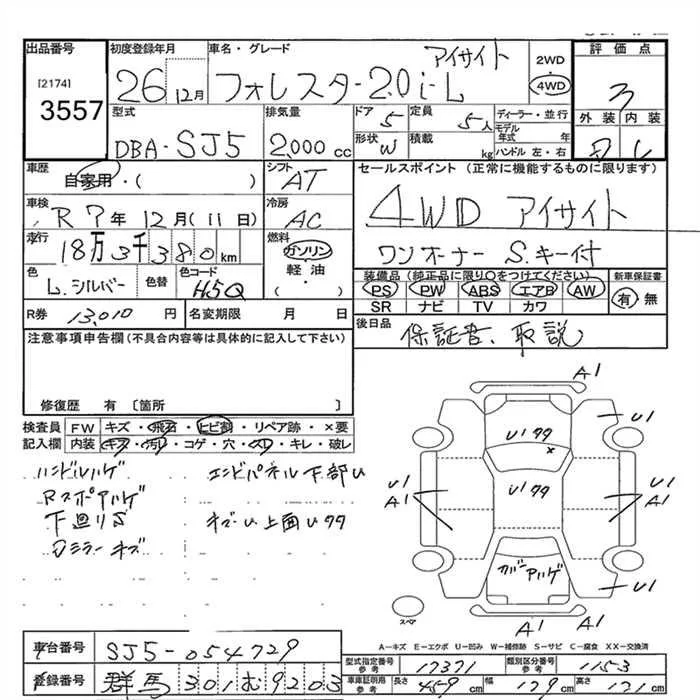 出品番号 初度登録年月 車名・グレード アイサイト 2WD 評価点
[2174] 26 12月 フォレスター 2.0 i-L 4WD 3
3557
型式 排気量 ドア 定員 ディーラー・並行 外装 内装
DBA-SJ5 2,000 cc 5 5人 モデル年式 年
形状 W 積載 kg ハンドル 左・右
車歴 自家用・( ) シフト AT セールスポイント (正常に機能するものに限ります)
車検 R 7年 12月 (11日) 冷房 AC 4WD アイサイト
走行 18万3千380 km 燃料 ガソリン 軽油・( ) ワンオーナー S.キー付
色 L.シルバー 色替 色コード H5Q 装備品(純正品に限り○をつけてください) 新車保証書
PS PW ABS エアB AW 有・無
SR ナビ TV カワ
R券 13,010円 名変期限 月 日 後日品 保証書、取説
注意事項申告欄(不具合内容等は具体的に記入して下さい)
修復歴 有 〔箇所 〕
検査員 FW キズ・飛石・ヒビ割・リペア跡・×要
記入欄 内装 キズ・汚れ・コゲ・穴・スレ・キレ・破レ
ハンドルハゲ エンドパネル下部U
下廻りS
ミラーキズ
A1
U1
U1 A1
U1 A1
U1
A1 A1
スペア
A-キズ E-エクボ U-凹み W-補修跡 S-サビ C-腐食 XX-交換済
車台番号 SJ5-054729
型式指定番号 参考 17371 類別区分番号 参考 1153
登録番号 群馬 301 む 9203
車庫証明用 参考 長さ 459cm 幅 179cm 高さ 171cm